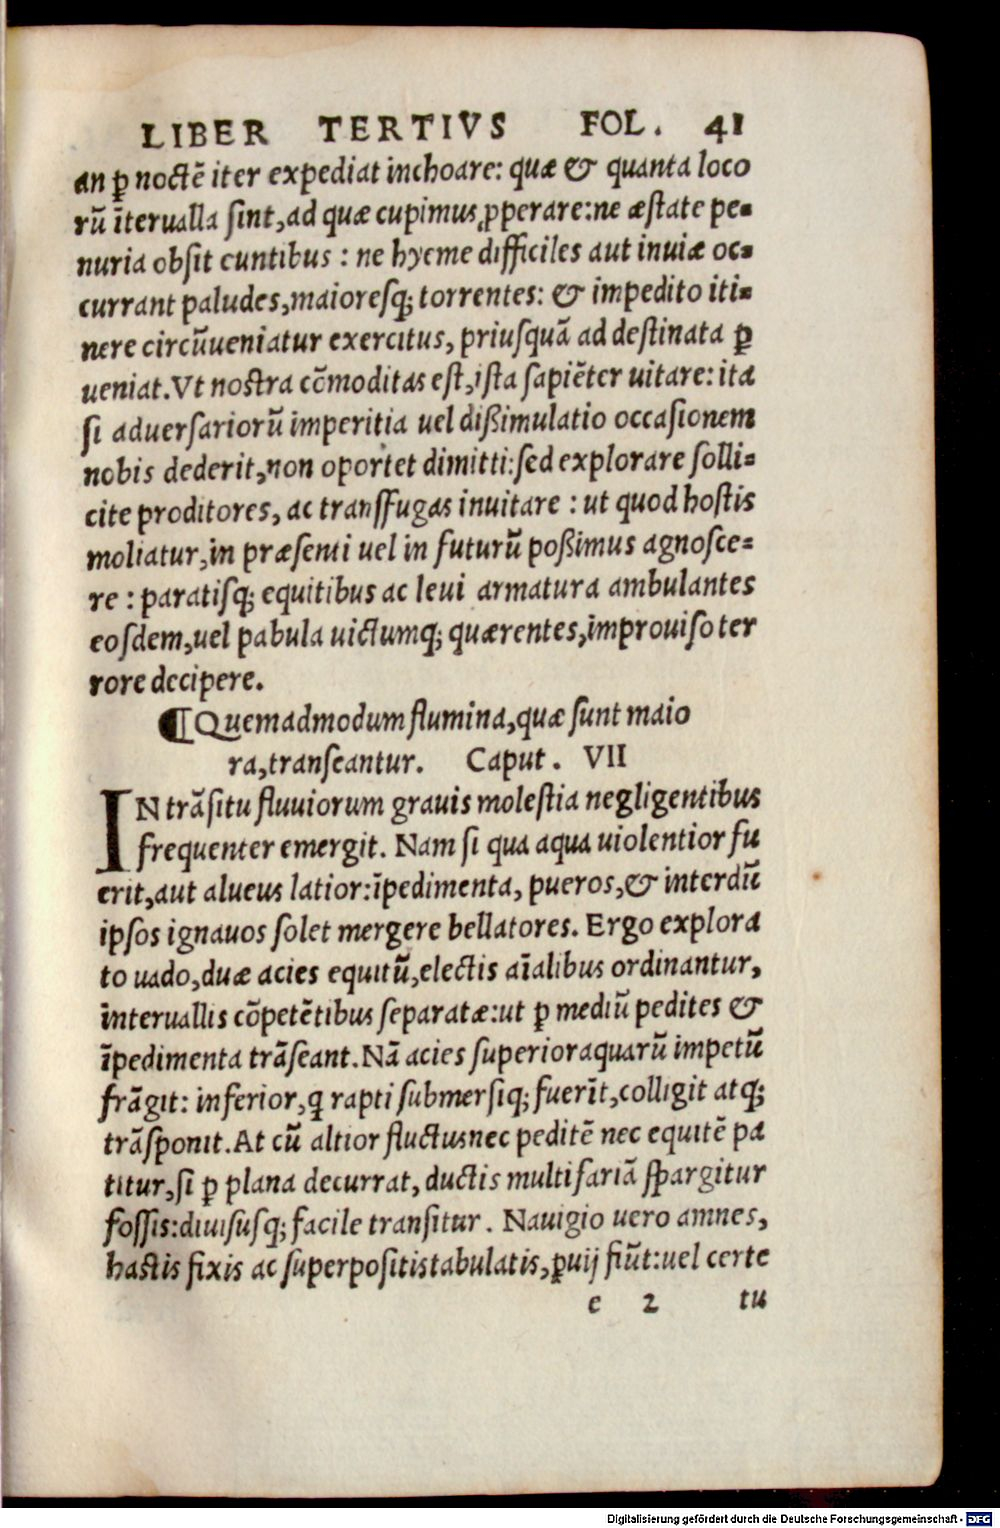 LIBER TERTIVS FOL. 41
an ꝑ noctē iter expediat inchoare: quæ & quanta loco
rū ītervalla ſint,ad quæ cupimus ꝓperare:ne æſtate pe=
nuria obſit euntibus : ne hyeme difficiles aut inuiæ oc=
currant paludes,maioreſq; torrentes: & impedito iti=
nere circūueniatur exercitus, priuſquā ad deſtinata ꝑ
ueniat.Vt noſtra cōmoditas eſt,iſta ſapiēter uitare: ita
ſi aduerſariorū imperitia uel dißimulatio occaſionem
nobis dederit,non oportet dimitti:ſed explorare ſolli=
cite proditores, ac tranſfugas inuitare : ut quod hoſtis
moliatur,in præſenti uel in futurū poßimus agnoſce=
re : paratiſq; equitibus ac leui armatura ambulantes
eoſdem,uel pabula uictumq; quærentes,improuiſo ter
rore decipere.
¶Quemadmodum flumina,quæ ſunt maio
ra,tranſeantur. Caput. VII
IN trāſitu fluuiorum grauis moleſtia negligentibus
frequenter emergit. Nam ſi qua aqua uiolentior fu
erit,aut alueus latior:īpedimenta, pueros,& interdū
ipſos ignauos ſolet mergere bellatores. Ergo explora
to uado,duæ acies equitū,electis aīalibus ordinantur,
interuallis cōpetētibus ſeparatæ:ut ꝑ mediū pedites &
īpedimenta trāſeant.Nā acies ſuperior aquarū impetū
frāgit: inferior,ꝗ rapti ſubmerſiq; fuerīt,colligit atq;
trāſponit.At cū altior fluctus nec peditē nec equitē pa
titur,ſi ꝑ plana decurrat, ductis multifariā ſpargitur
foſſis:diuiſuſq; facile tranſitur. Nauigio uero amnes,
haſtis fixis ac ſuperpoſitis tabulatis,ꝑuij fiūt:uel certe
e 2 tu
Digitalisierung gefördert durch die Deutsche Forschungsgemeinschaft - DFG